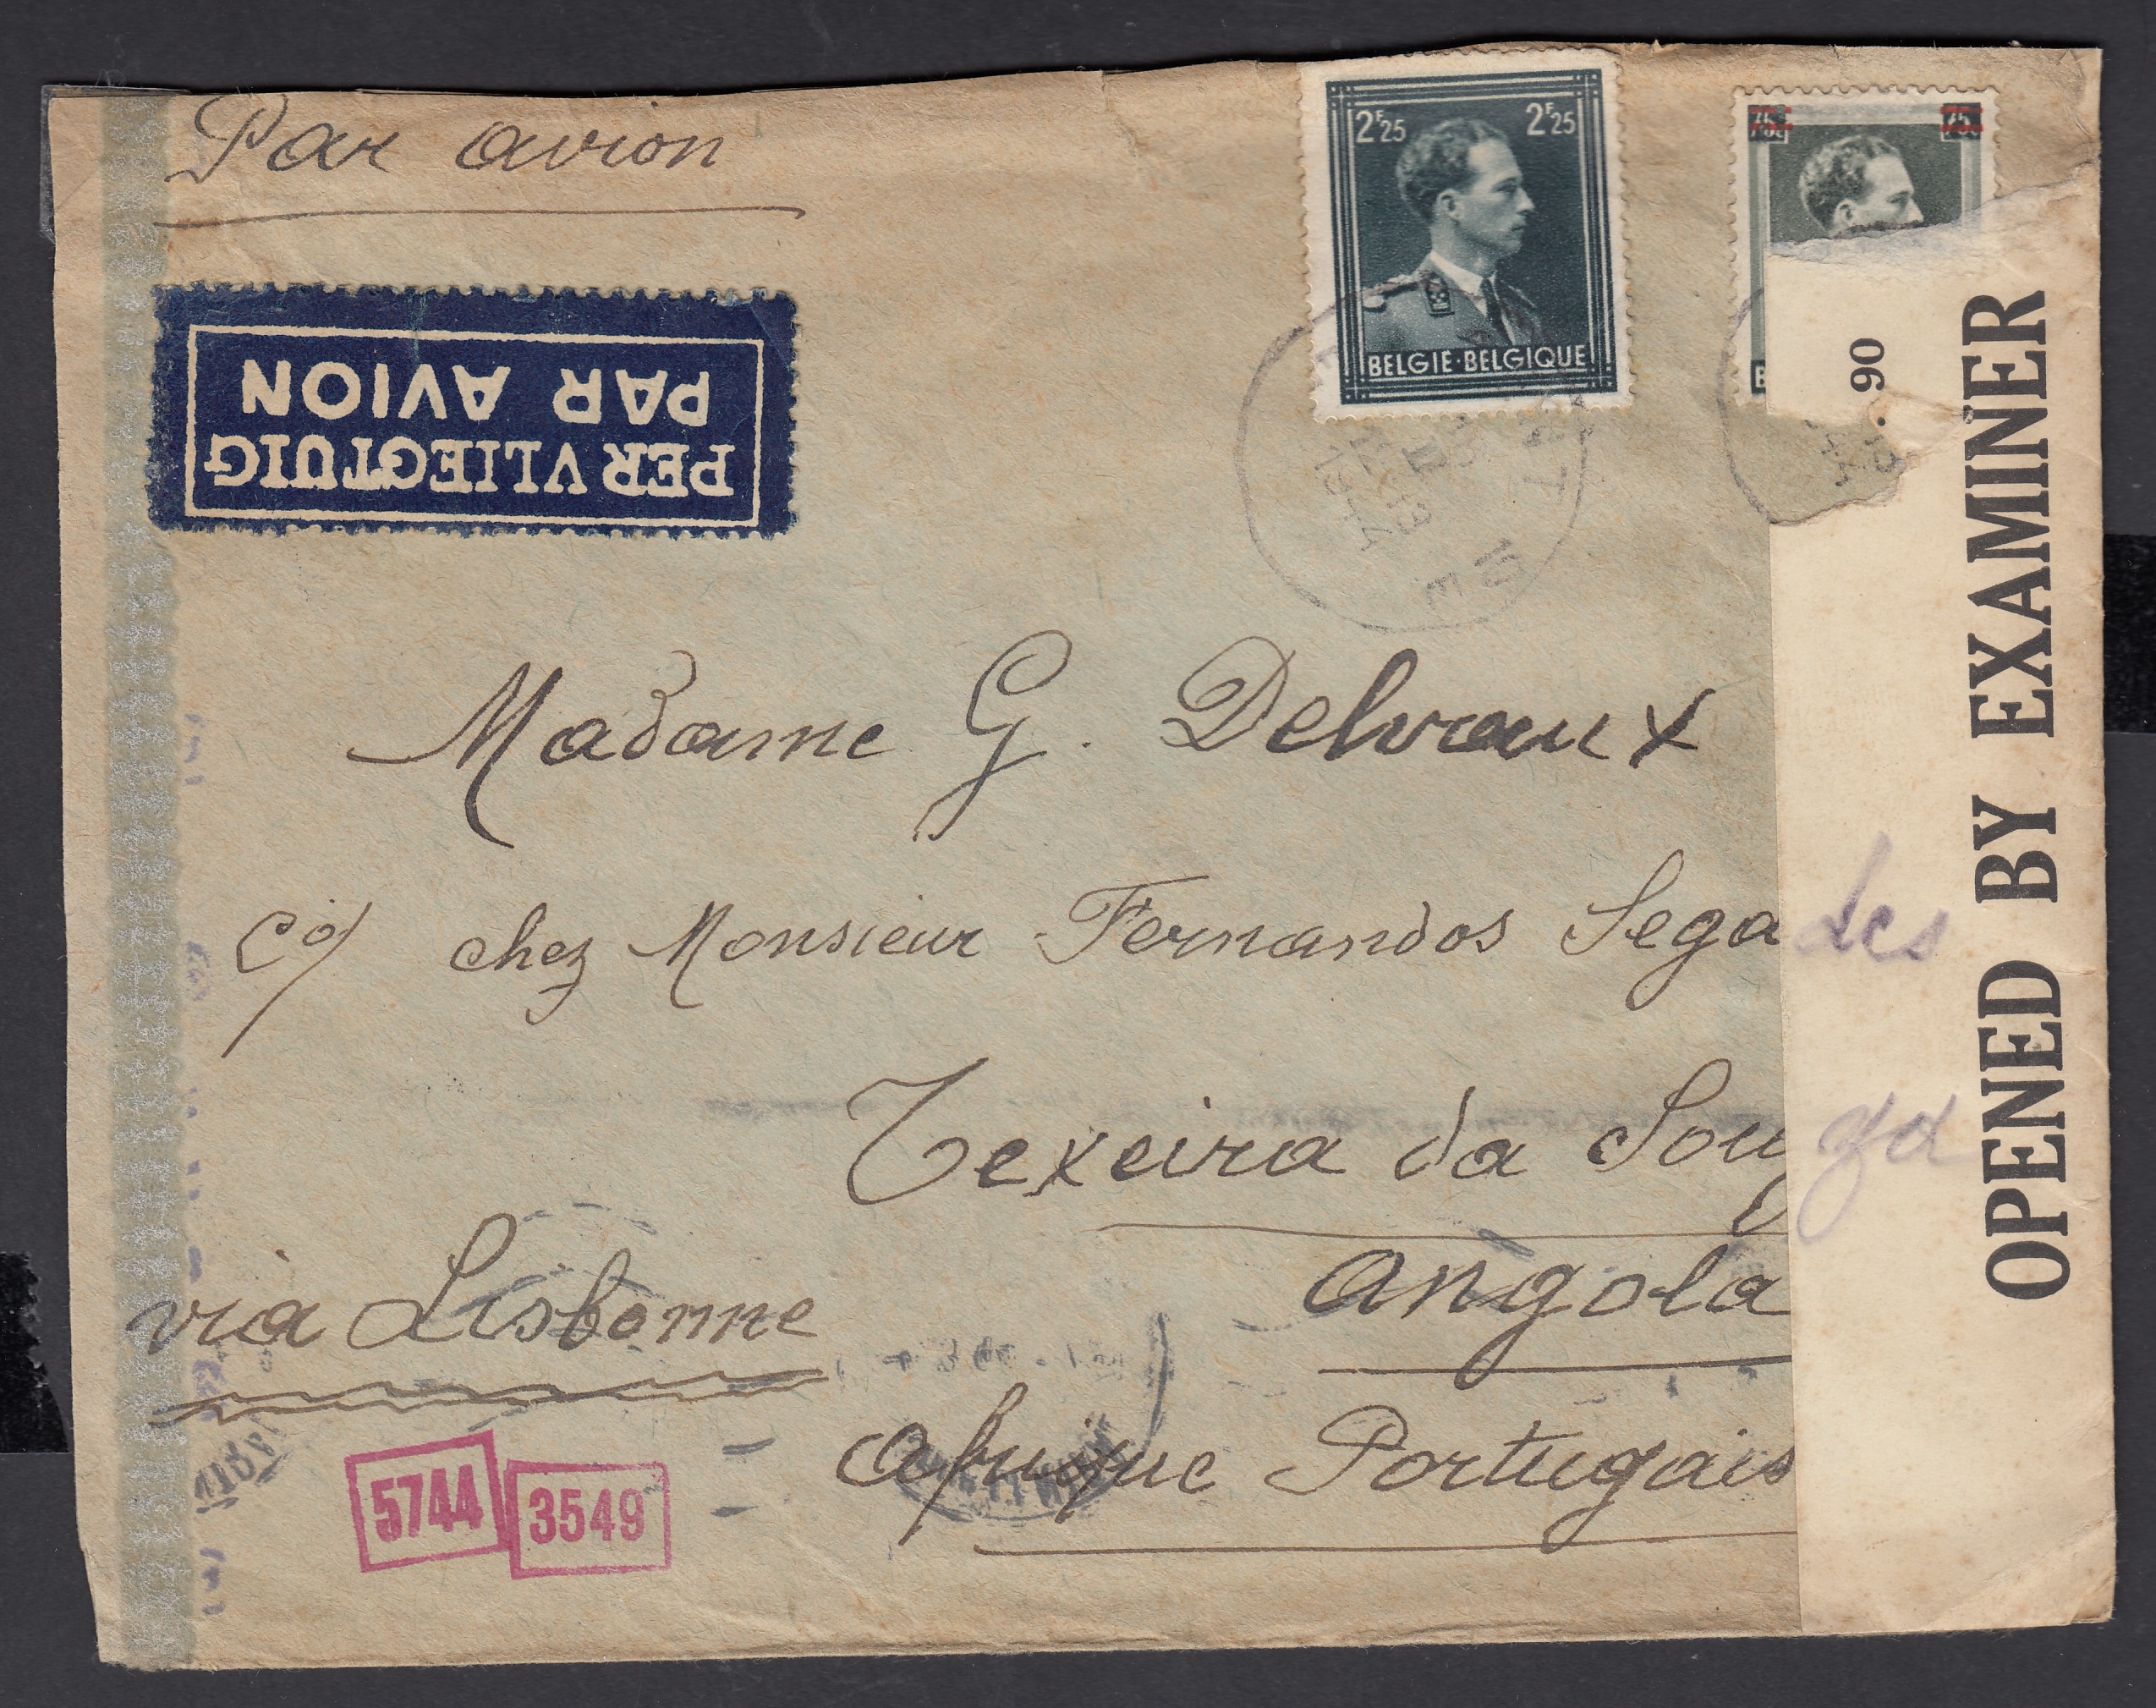 Par avion
2F25 2F25
BELGIE·BELGIQUE
75c 75c
PER VLIEGTUIG
PAR AVION
. 90
OPENED BY EXAMINER
Madame G. Delvaux
c/o chez Monsieur Fernandos Segades
Texeira da Souza
via Lisbonne
Angola
Afrique Portugais
5744
3549